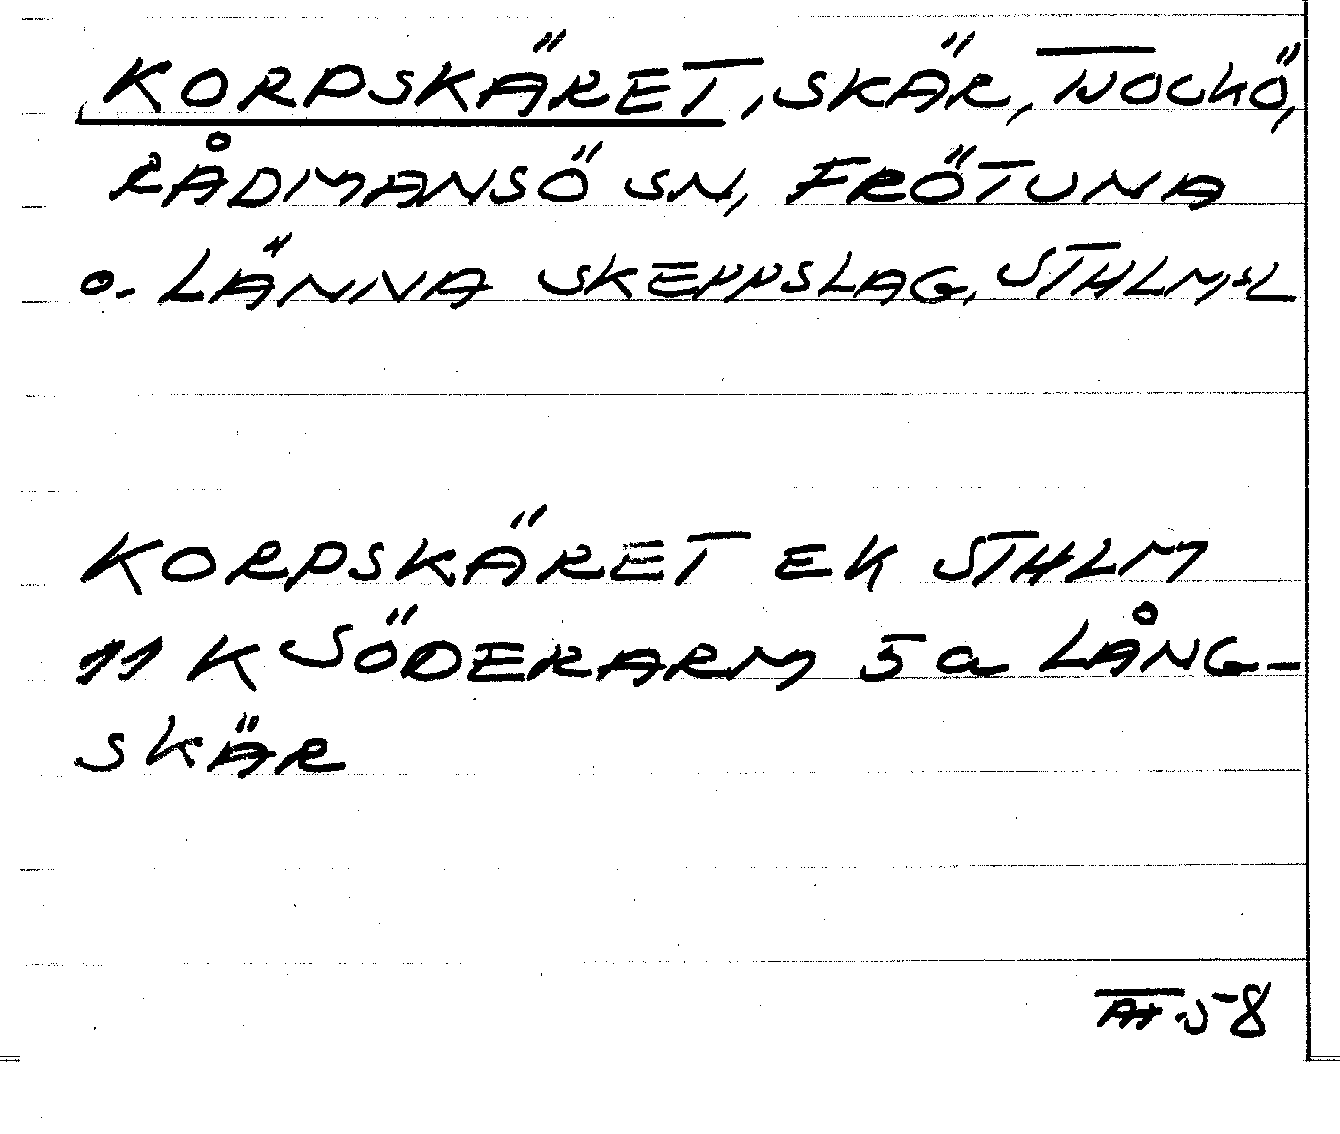 KORPSKÄRET, SKÄR, NOCKÖ,
RÅDMANSÖ SN, FRÖTUNA
o. LÄNNA SKEPPSLAG, STHLMSL
KORPSKÄRET EK STHLM
11 K SÖDERARM 5 a LÅNG-
SKÄR
58